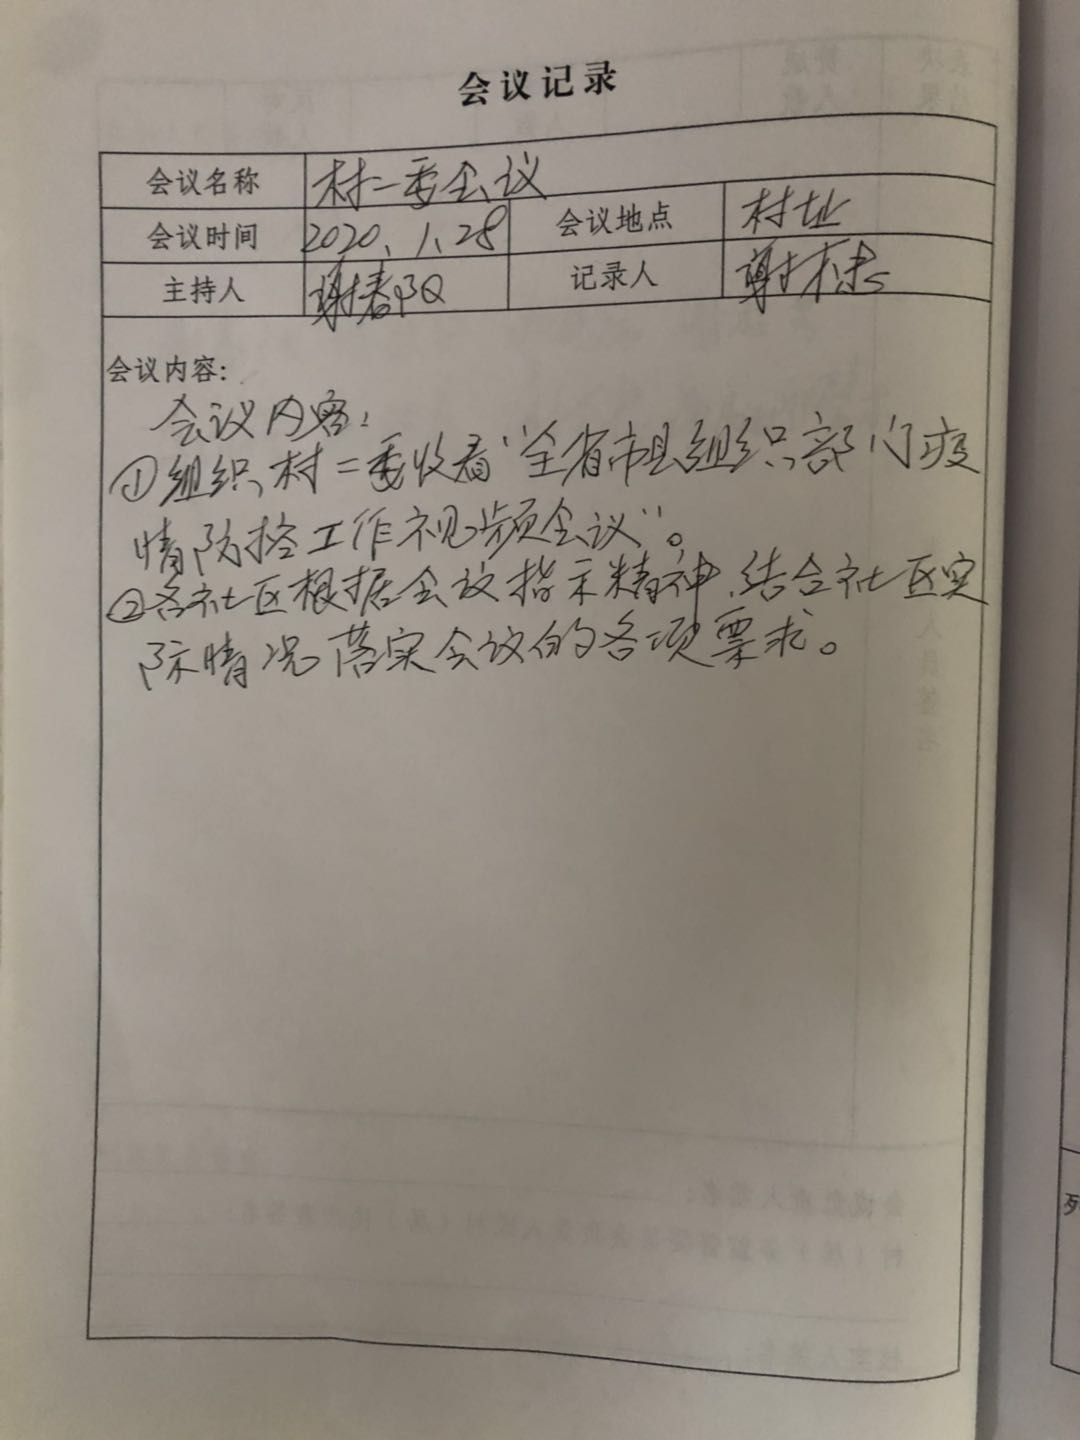 会议记录
会议名称 村二委会议
会议时间 2020、1、28 会议地点 村址
主持人 谢春阳 记录人 谢栋
会议内容:
会议内容:
①组织村二委收看“全省市县组织部门疫
情防控工作视频会议”。
②各社区根据会议指示精神、结合社区实
际情况落实会议的各项要求。